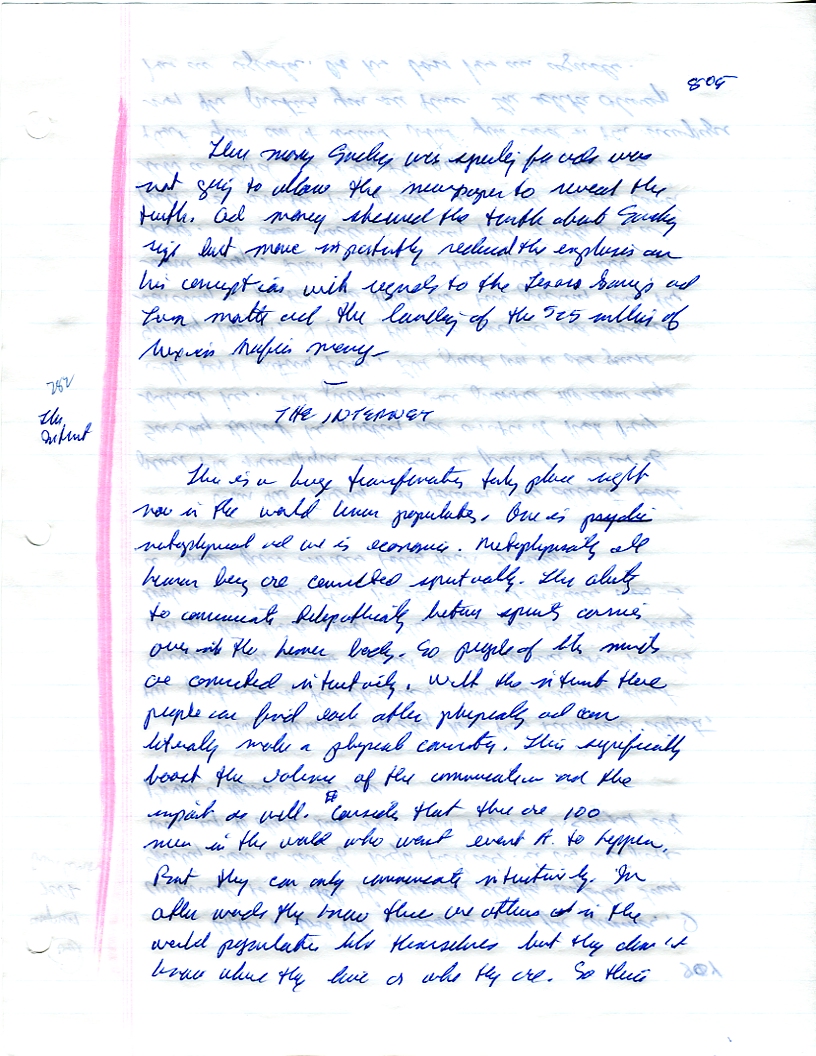 805
The money was spending for ads was
not going to allow the newspaper to reveal the
truth. Ad money skewed the truth about
but more importantly reduced the emphasis on
his corruption with regards to the Savings and
Loan matter and the laundering of the $25 million of
Mexican Mafia money.
282
The
Internet
THE INTERNET
There is a huge transformation taking place right
now in the world human population. One is psychic
metaphysical and one is economic. Metaphysically all
human beings are connected spiritually. The ability
to communicate telepathically between spirits carries
over into the human body. So people of like minds
are connected intuitively. With the internet these
people can find each other physically and can
literally make a physical connection. This significantly
boost the volume of the communication and the
impact as well. Consider that there are 100
men in the world who want event A. to happen.
But they can only communicate intuitively. In
other words they know there are others out in the
world population like themselves but they don't
know where they live or who they are. So their